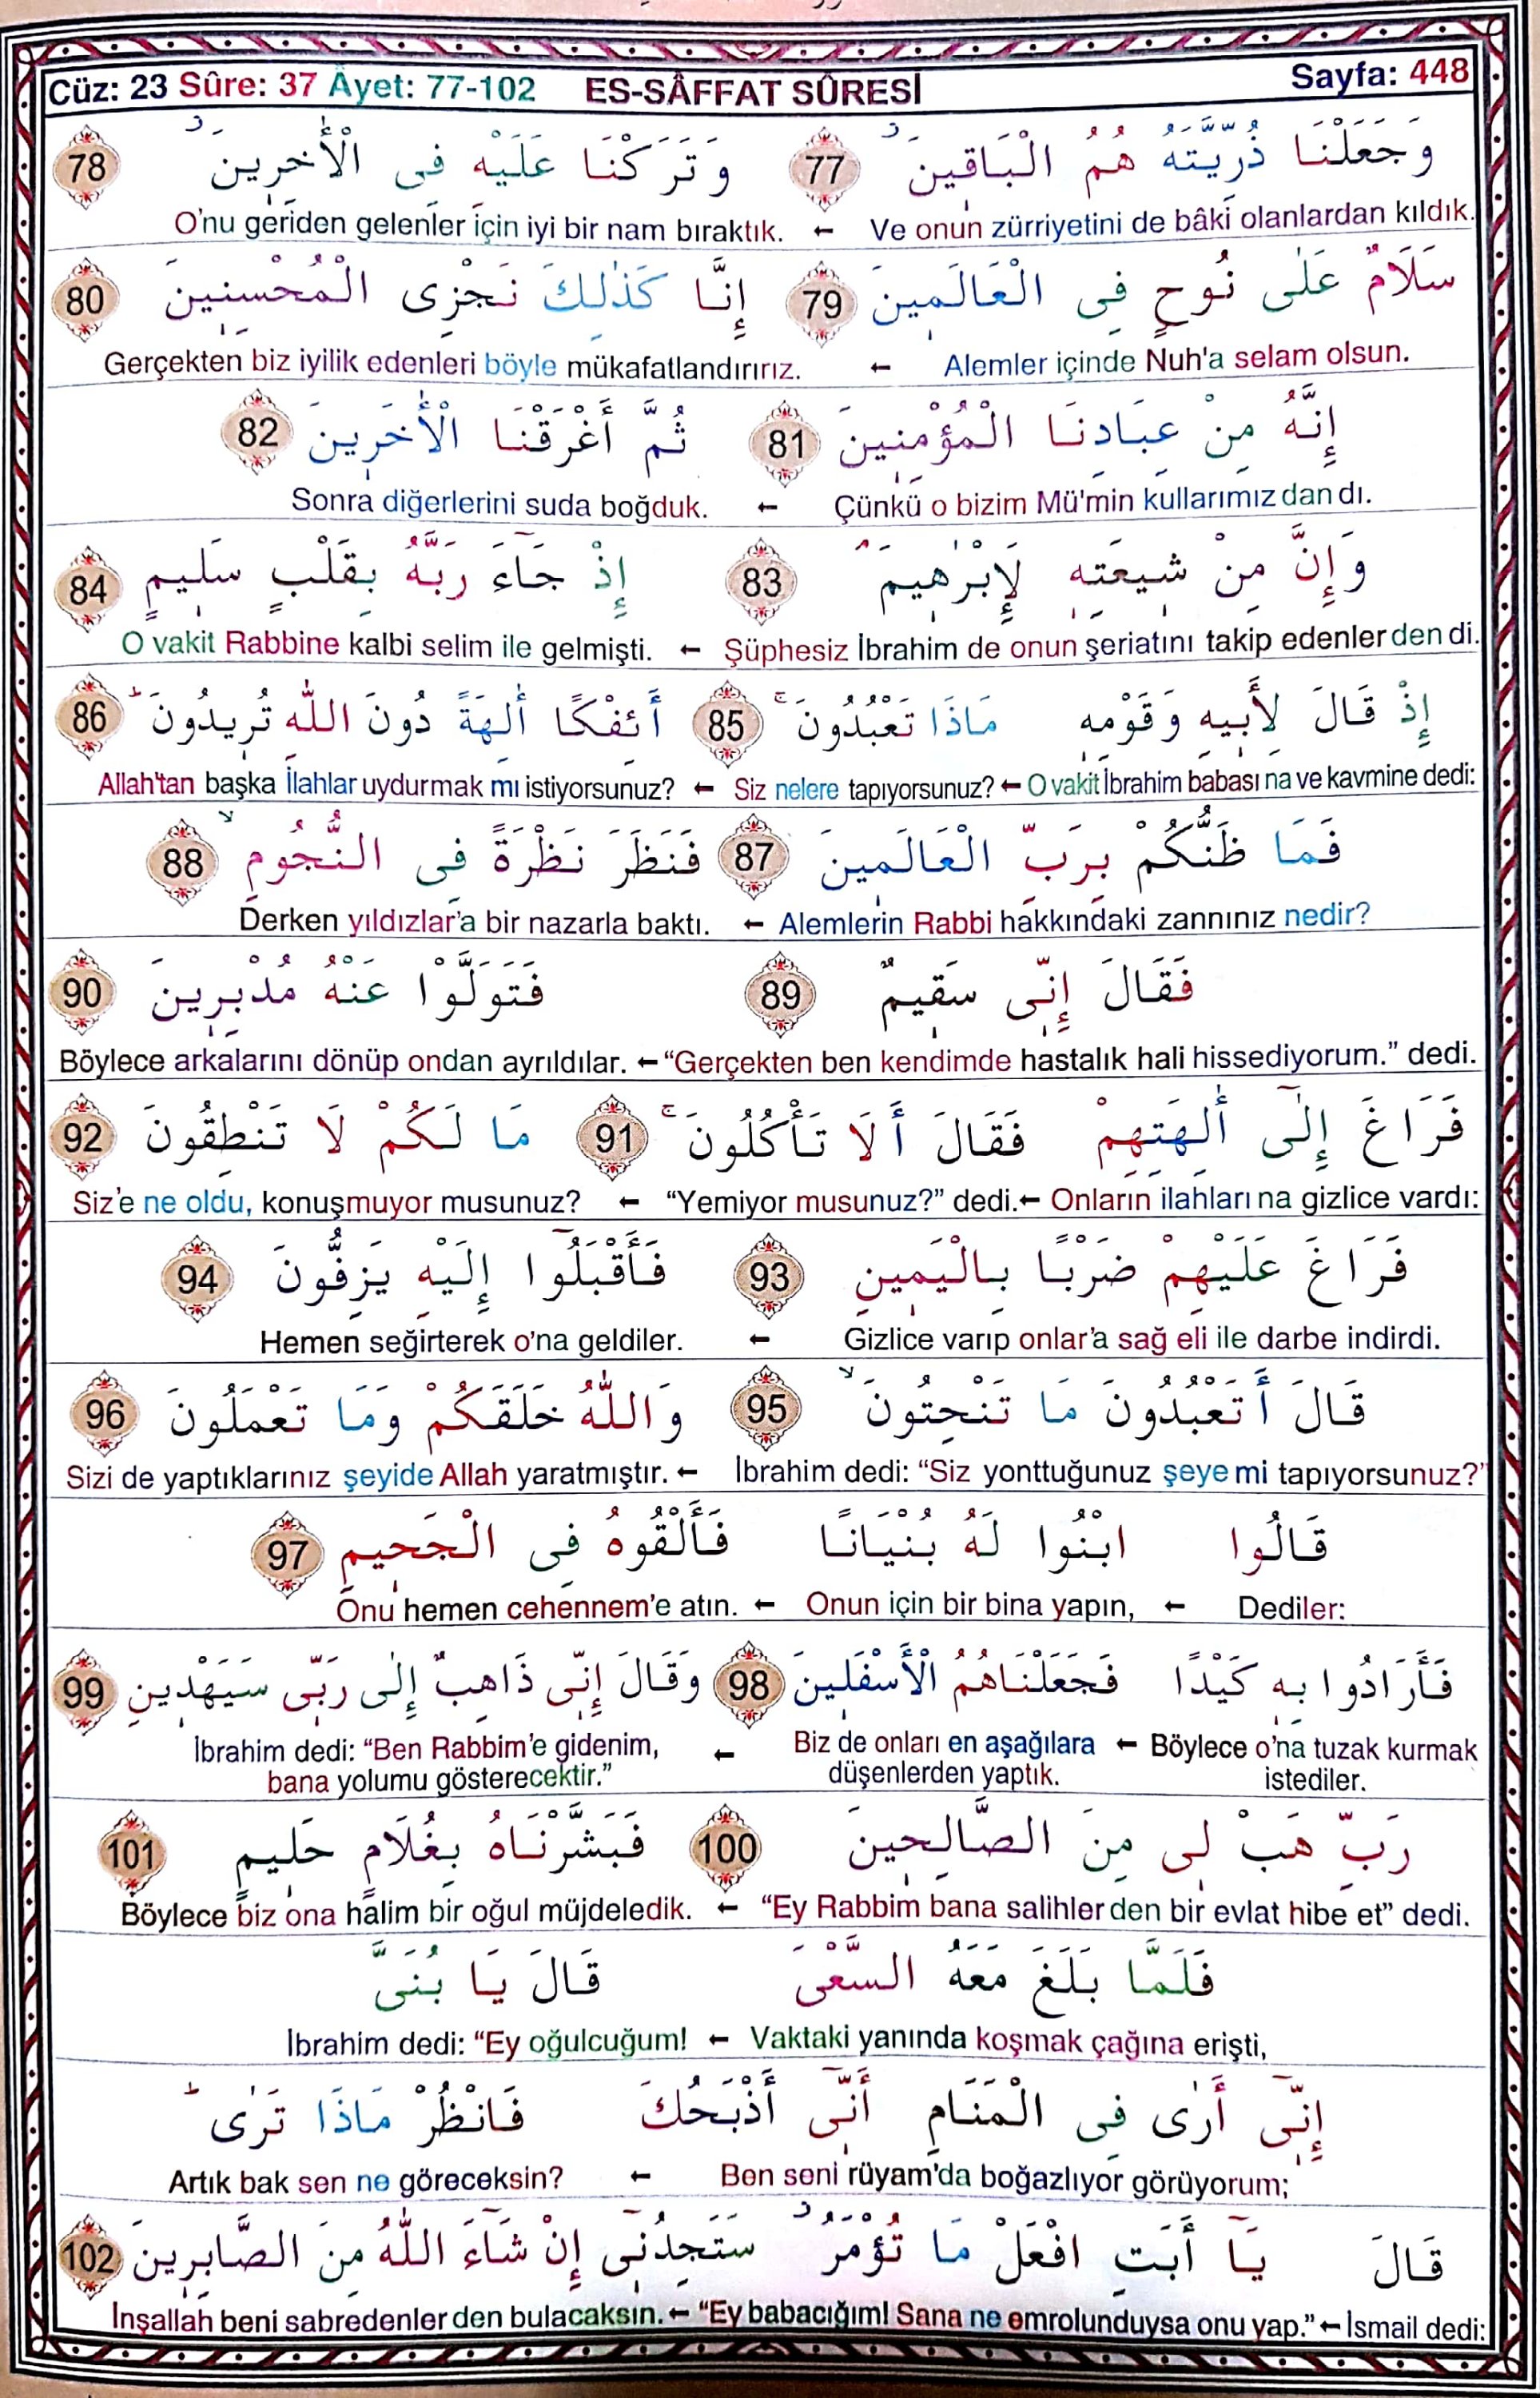 Cüz: 23 Sûre: 37 Âyet: 77-102 ES-SÂFFAT SÛRESİ Sayfa: 448
وَجَعَلْنَا ذُرِّيَّتَهُ هُمُ الْبَاقِينَ ۘ 77 وَتَرَكْنَا عَلَيْهِ فِى الْاٰخِرِينَ ۘ 78
Ve onun zürriyetini de bâki olanlardan kıldık. ← O'nu geriden gelenler için iyi bir nam bıraktık.
سَلَامٌ عَلٰى نُوحٍ فِى الْعَالَمِينَ 79 إِنَّا كَذٰلِكَ نَجْزِى الْمُحْسِنِينَ 80
Alemler içinde Nuh'a selam olsun. ← Gerçekten biz iyilik edenleri böyle mükafatlandırırız.
إِنَّهُ مِنْ عِبَادِنَا الْمُؤْمِنِينَ 81 ثُمَّ أَغْرَقْنَا الْاٰخَرِينَ 82
Çünkü o bizim Mü'min kullarımızdandı. ← Sonra diğerlerini suda boğduk.
وَإِنَّ مِنْ شِيعَتِهِ لَإِبْرٰهِيمَ ۘ 83 إِذْ جَاءَ رَبَّهُ بِقَلْبٍ سَلِيمٍ 84
Şüphesiz İbrahim de onun şeriatını takip edenlerdendi. ← O vakit Rabbine kalbi selim ile gelmişti.
إِذْ قَالَ لِأَبِيهِ وَقَوْمِهِ مَاذَا تَعْبُدُونَ ۚ 85 أَئِفْكًا اٰلِهَةً دُونَ اللّٰهِ تُرِيدُونَ ؕ 86
O vakit İbrahim babasına ve kavmine dedi: ← Siz nelere tapıyorsunuz? ← Allah'tan başka ilahlar uydurmak mı istiyorsunuz?
فَمَا ظَنُّكُمْ بِرَبِّ الْعَالَمِينَ 87 فَنَظَرَ نَظْرَةً فِى النُّجُومِ ۙ 88
Alemlerin Rabbi hakkındaki zannınız nedir? ← Derken yıldızlar'a bir nazarla baktı.
فَقَالَ إِنِّى سَقِيمٌ 89 فَتَوَلَّوْا عَنْهُ مُدْبِرِينَ 90
“Gerçekten ben kendimde hastalık hali hissediyorum.” dedi. ← Böylece arkalarını dönüp ondan ayrıldılar.
فَرَاغَ إِلٰٓى اٰلِهَتِهِمْ فَقَالَ أَلَا تَأْكُلُونَ ۚ 91 مَا لَكُمْ لَا تَنْطِقُونَ 92
Onların ilahlarına gizlice vardı: ← “Yemiyor musunuz?” dedi. ← Siz'e ne oldu, konuşmuyor musunuz?
فَرَاغَ عَلَيْهِمْ ضَرْبًا بِالْيَمِينِ 93 فَأَقْبَلُٓوا إِلَيْهِ يَزِفُّونَ 94
Gizlice varıp onlar'a sağ eli ile darbe indirdi. ← Hemen seğirterek o'na geldiler.
قَالَ أَتَعْبُدُونَ مَا تَنْحِتُونَ ۙ 95 وَاللّٰهُ خَلَقَكُمْ وَمَا تَعْمَلُونَ 96
İbrahim dedi: “Siz yonttuğunuz şeye mi tapıyorsunuz?” ← Sizi de yaptıklarınız şeyide Allah yaratmıştır.
قَالُوا ابْنُوا لَهُ بُنْيَانًا فَأَلْقُوهُ فِى الْجَحِيمِ 97
Dediler: ← Onun için bir bina yapın, ← Onu hemen cehennem'e atın.
فَأَرَادُوا بِهِ كَيْدًا فَجَعَلْنَاهُمُ الْأَسْفَلِينَ 98 وَقَالَ إِنِّى ذَاهِبٌ إِلٰى رَبِّى سَيَهْدِينِ 99
Böylece o'na tuzak kurmak istediler. ← Biz de onları en aşağılara düşenlerden yaptık. ← İbrahim dedi: “Ben Rabbim'e gidenim, bana yolumu gösterecektir.”
رَبِّ هَبْ لِى مِنَ الصَّالِحِينَ 100 فَبَشَّرْنَاهُ بِغُلَامٍ حَلِيمٍ 101
“Ey Rabbim bana salihlerden bir evlat hibe et” dedi. ← Böylece biz ona halim bir oğul müjdeledik.
فَلَمَّا بَلَغَ مَعَهُ السَّعْىَ قَالَ يَا بُنَىَّ
Vaktaki yanında koşmak çağına erişti, ← İbrahim dedi: “Ey oğulcuğum!
إِنِّٓى أَرٰى فِى الْمَنَامِ أَنِّٓى أَذْبَحُكَ فَانْظُرْ مَاذَا تَرٰى ؕ
Ben seni rüyam'da boğazlıyor görüyorum; ← Artık bak sen ne göreceksin?
قَالَ يَٓا أَبَتِ افْعَلْ مَا تُؤْمَرُ ۘ سَتَجِدُنِٓى إِنْ شَٓاءَ اللّٰهُ مِنَ الصَّابِرِينَ 102
İsmail dedi: ← “Ey babacığım! Sana ne emrolunduysa onu yap.” ← İnşallah beni sabredenlerden bulacaksın.